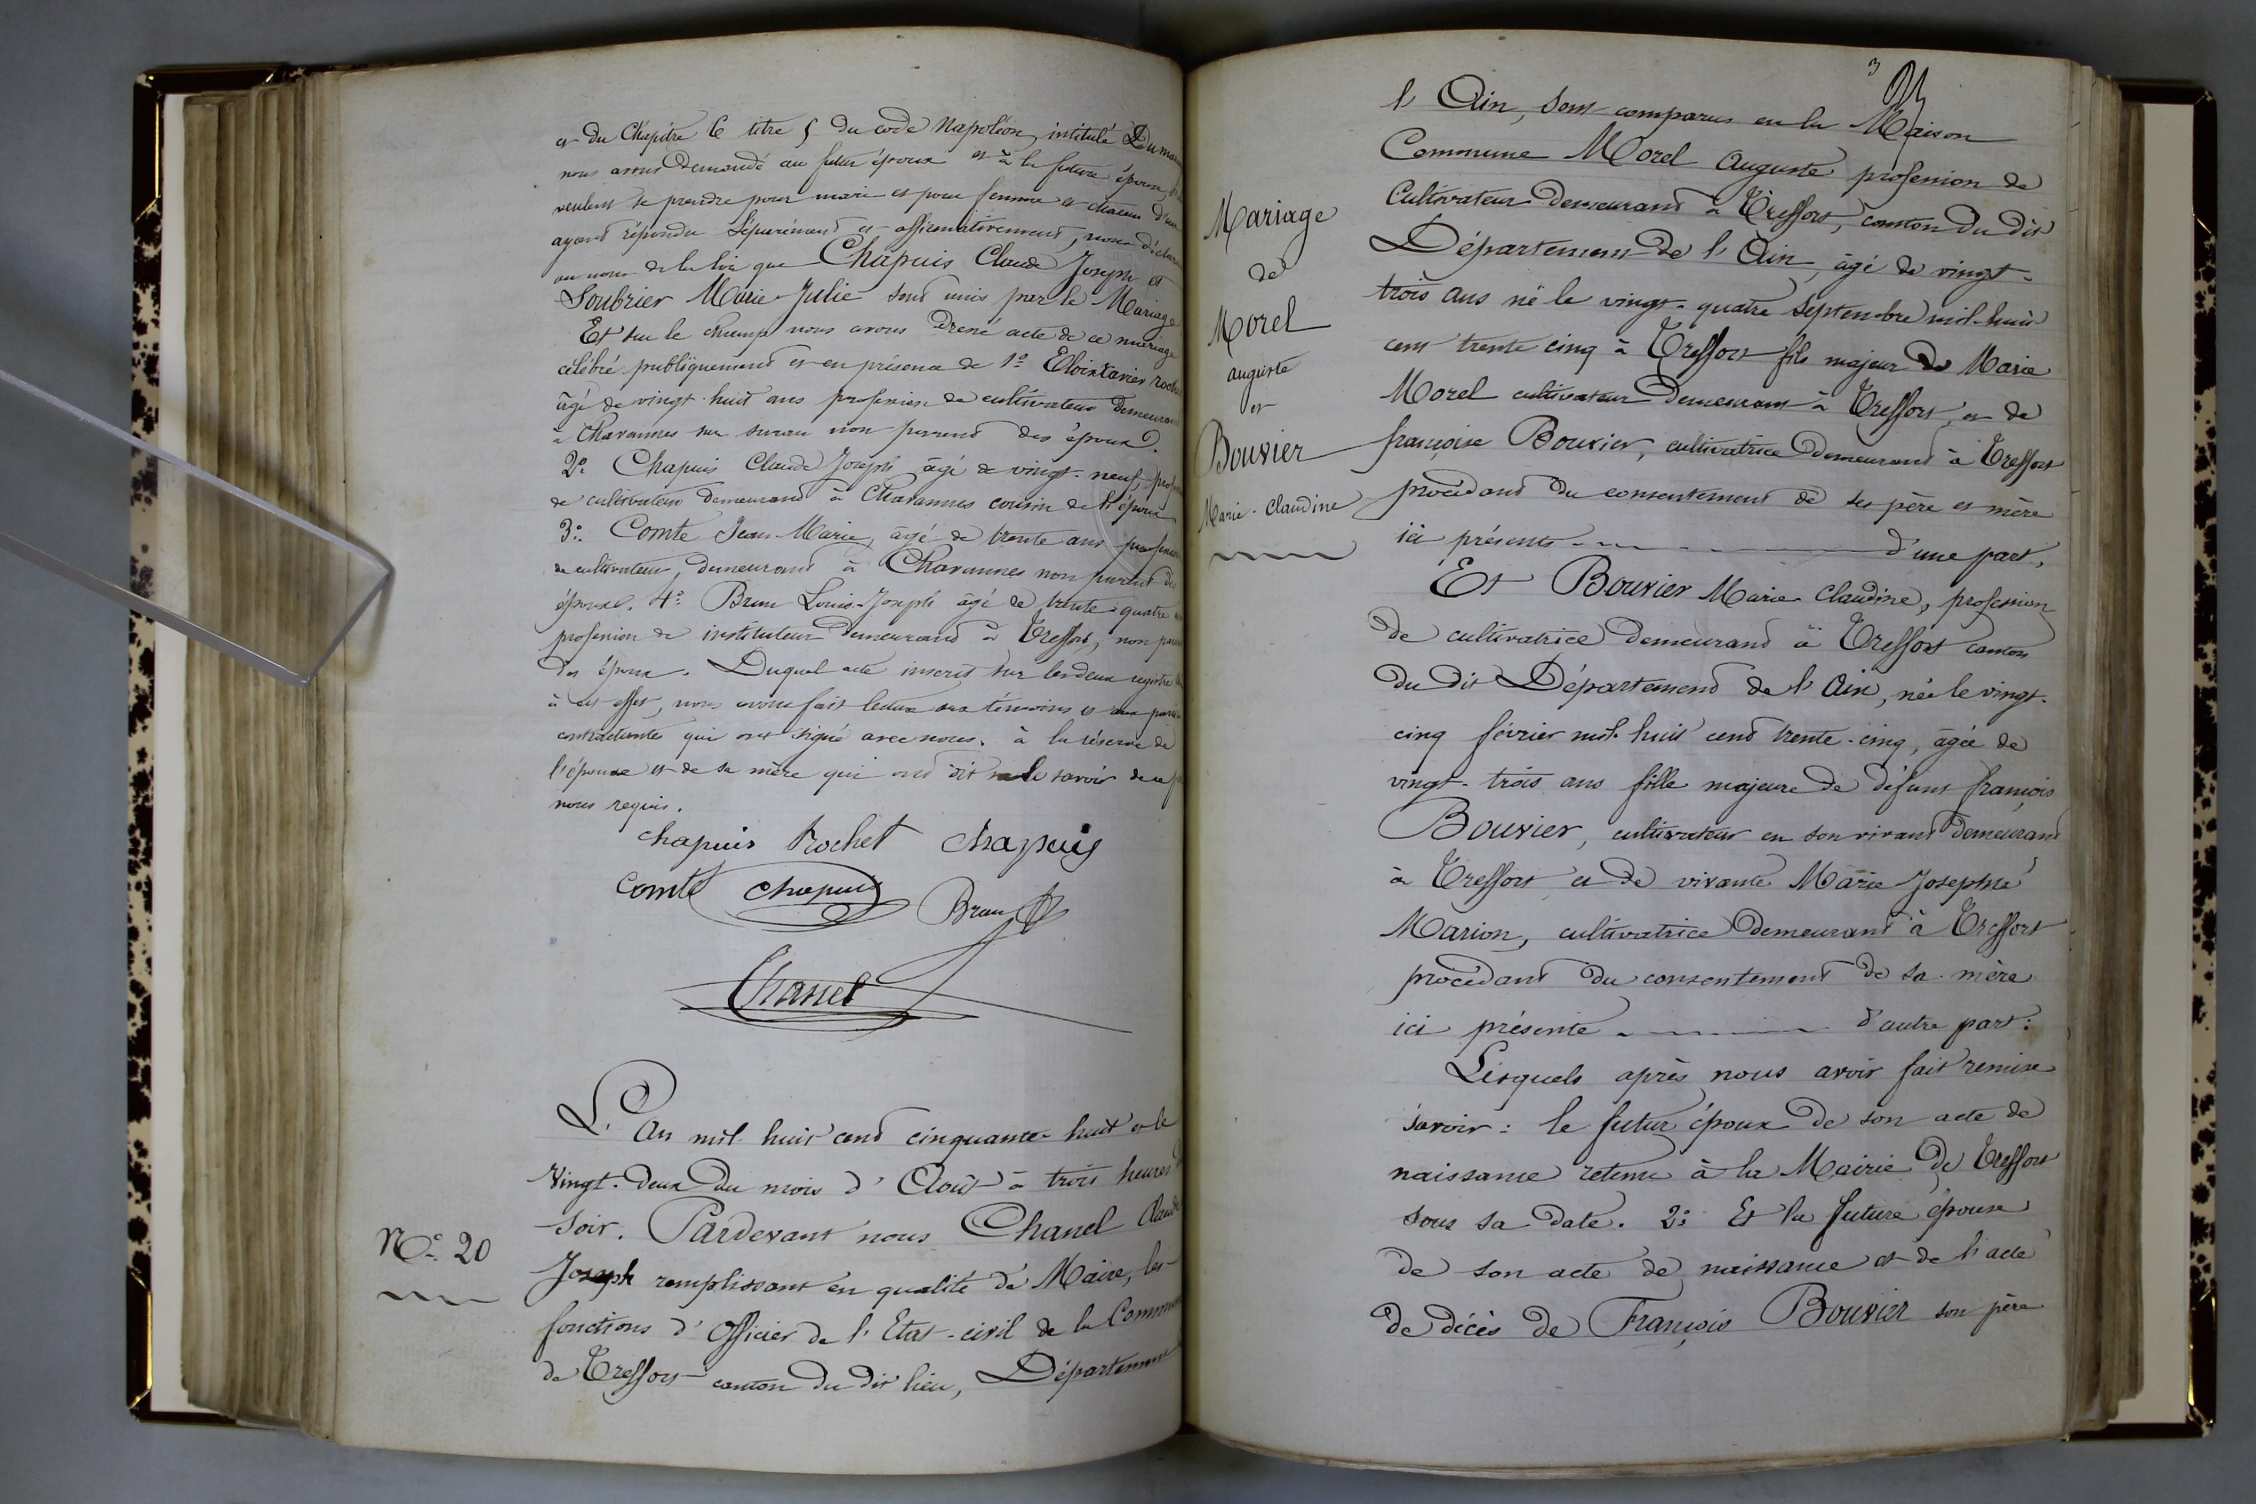 et du Chapitre 6 titre 5 du code Napoléon, intitulé Du
nous avons demandé au futur époux et à la future épouse
veulent se prendre pour mari et pour femme et chacun d'eux
ayant répondu séparément et affirmativement, nous
au nom de la loi que Chapuis Claude Joseph et
Soubrier Marie-Julie sont unis par le Mariage
Et sur le champ nous avons dressé acte de ce mariage
célébré publiquement et en présence de 1º Eloi Xavier
âgé de vingt-huit ans profession de cultivateur
à Chavannes sur suran non parent des époux.
2º Chapuis Claude Joseph âgé de vingt-neuf
de cultivateur demeurant à Chavannes cousin de l'époux
3º Comte Jean-Marie, âgé de trente ans
de cultivateur, demeurant à Chavannes non parent
époux. 4º Brun Louis-Joseph âgé de trente-quatre
profession de instituteur demeurant à Treffort, non
des époux. Duquel acte inscrit sur les deux registres
à cet effet, nous avons fait lecture aux témoins et aux
contractantes qui ont signé avec nous, à la réserve de
l'épouse et de sa mère qui ont dit ne le savoir de ce
nous requis.
Chapuis Rochet Chapuis
Comte Chapuis Brun
Chanel
L'An mil huit cent cinquante-huit et le
Vingt-deux du mois d'Août à trois heures
Soir. Pardevant nous Chanel Claude
Nº 20
Joseph remplissant en qualité de Maire, les
fonctions d'Officier de l'Etat-civil de la
de Treffort canton du dit lieu, Département
3
l'Ain, sont comparus en la Maison
Commune Morel Auguste profession de
Cultivateur demeurant à Treffort, canton du dit
Département de l'Ain, âgé de vingt-
trois ans né le vingt-quatre septembre mil-huit
cent trente cinq à Treffort fils majeur de Marie
Morel cultivateur demeurant à Treffort et de
françoise Bouvier, cultivatrice demeurant à Treffort
procédant du consentement de ses père et mère
ici présents d'une part,
Mariage
de
Morel
auguste
et
Bouvier
Marie-Claudine
Et Bouvier Marie Claudine, profession
de cultivatrice demeurant à Treffort canton
du dit Département de l'Ain, née le vingt-
cinq février mil huit cent trente-cinq, âgée de
vingt-trois ans fille majeure de défunt françois
Bouvier, cultivateur en son vivant demeurant
à Treffort et de vivante Marie Josephte
Marion, cultivatrice demeurant à Treffort
procédant du consentement de sa mère
ici présente d'autre part:
Lesquels après nous avoir fait remise
savoir: le futur époux de son acte de
naissance retenu à la Mairie de Treffort
sous sa date. 2º Et la future épouse
de son acte de naissance et de l'acte
de décès de François Bouvier son père